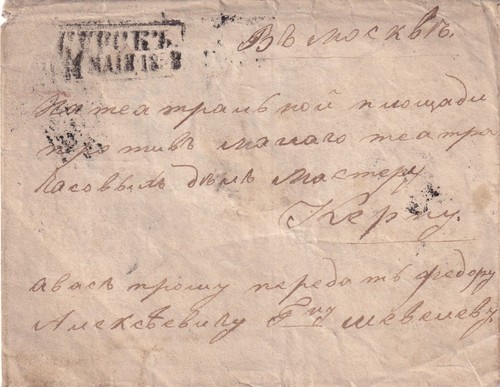 КУРСКЪ
МАІЯ 18
Въ Москвѣ.
На театральной площади
противъ малаго театра
Часовыхъ дѣлъ мастеру
Керну.
а васъ прошу передать федору
Алексѣевичу Гну Шевелеву.